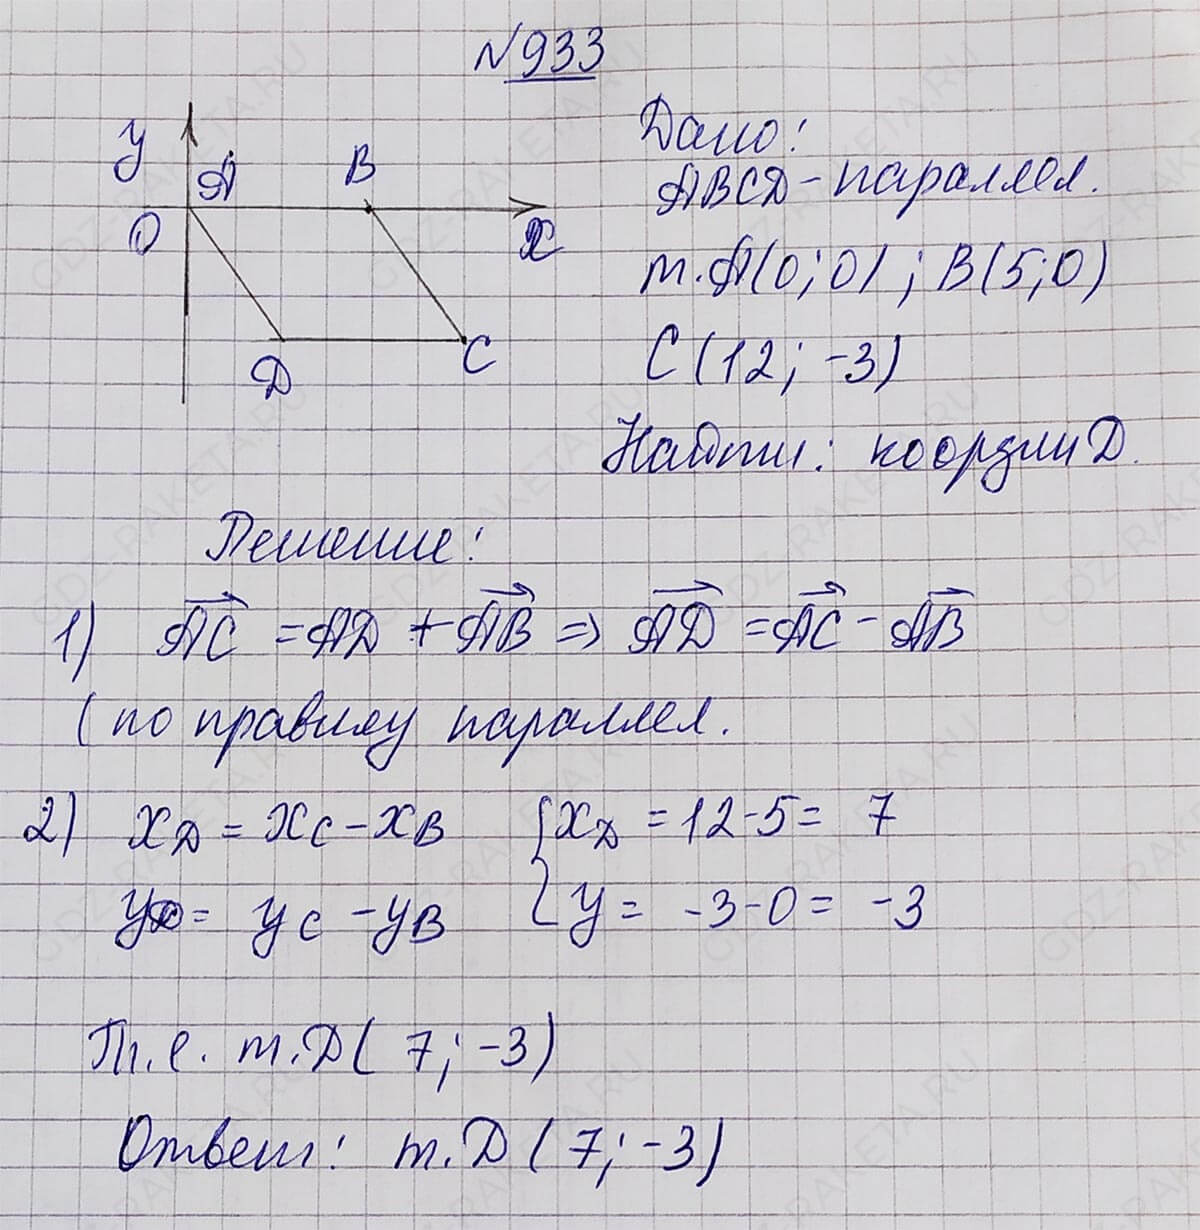 №933
Дано:
y
A
B
ABCD-параллел.
O
x
т.A(0;0); B(5;0)
D
C
C(12; -3)
Найти: коорди D.
Решение:
1) AC = AD + AB => AD = AC - AB
(по правилу параллел.
2) xD = xC - xB { xD = 12-5= 7
yD = yC - yB { y = -3-0= -3
Т.е. т.D( 7; -3)
Ответ: т.D (7; -3)
GDZ-RAKETA.RU